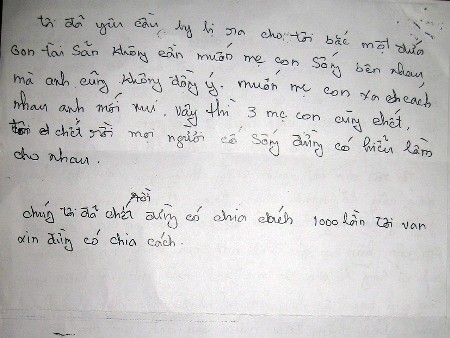 tôi đả yêu cầu ly hị ra cho tôi bắc một đứa
con tài sản không cần muốn mẹ con sống bên nhau
mà anh cũng không đồng ý. muốn mẹ con xa chcách
nhau anh mới vui. vậy thì 3 mẹ con cùng chết.
chết rồi mọi người cố sống đừng có hiểu lầm
cho nhau.
chúng tôi đả chết rồi đừng có chia cách 1000 lần tôi van
xin đừng có chia cách.